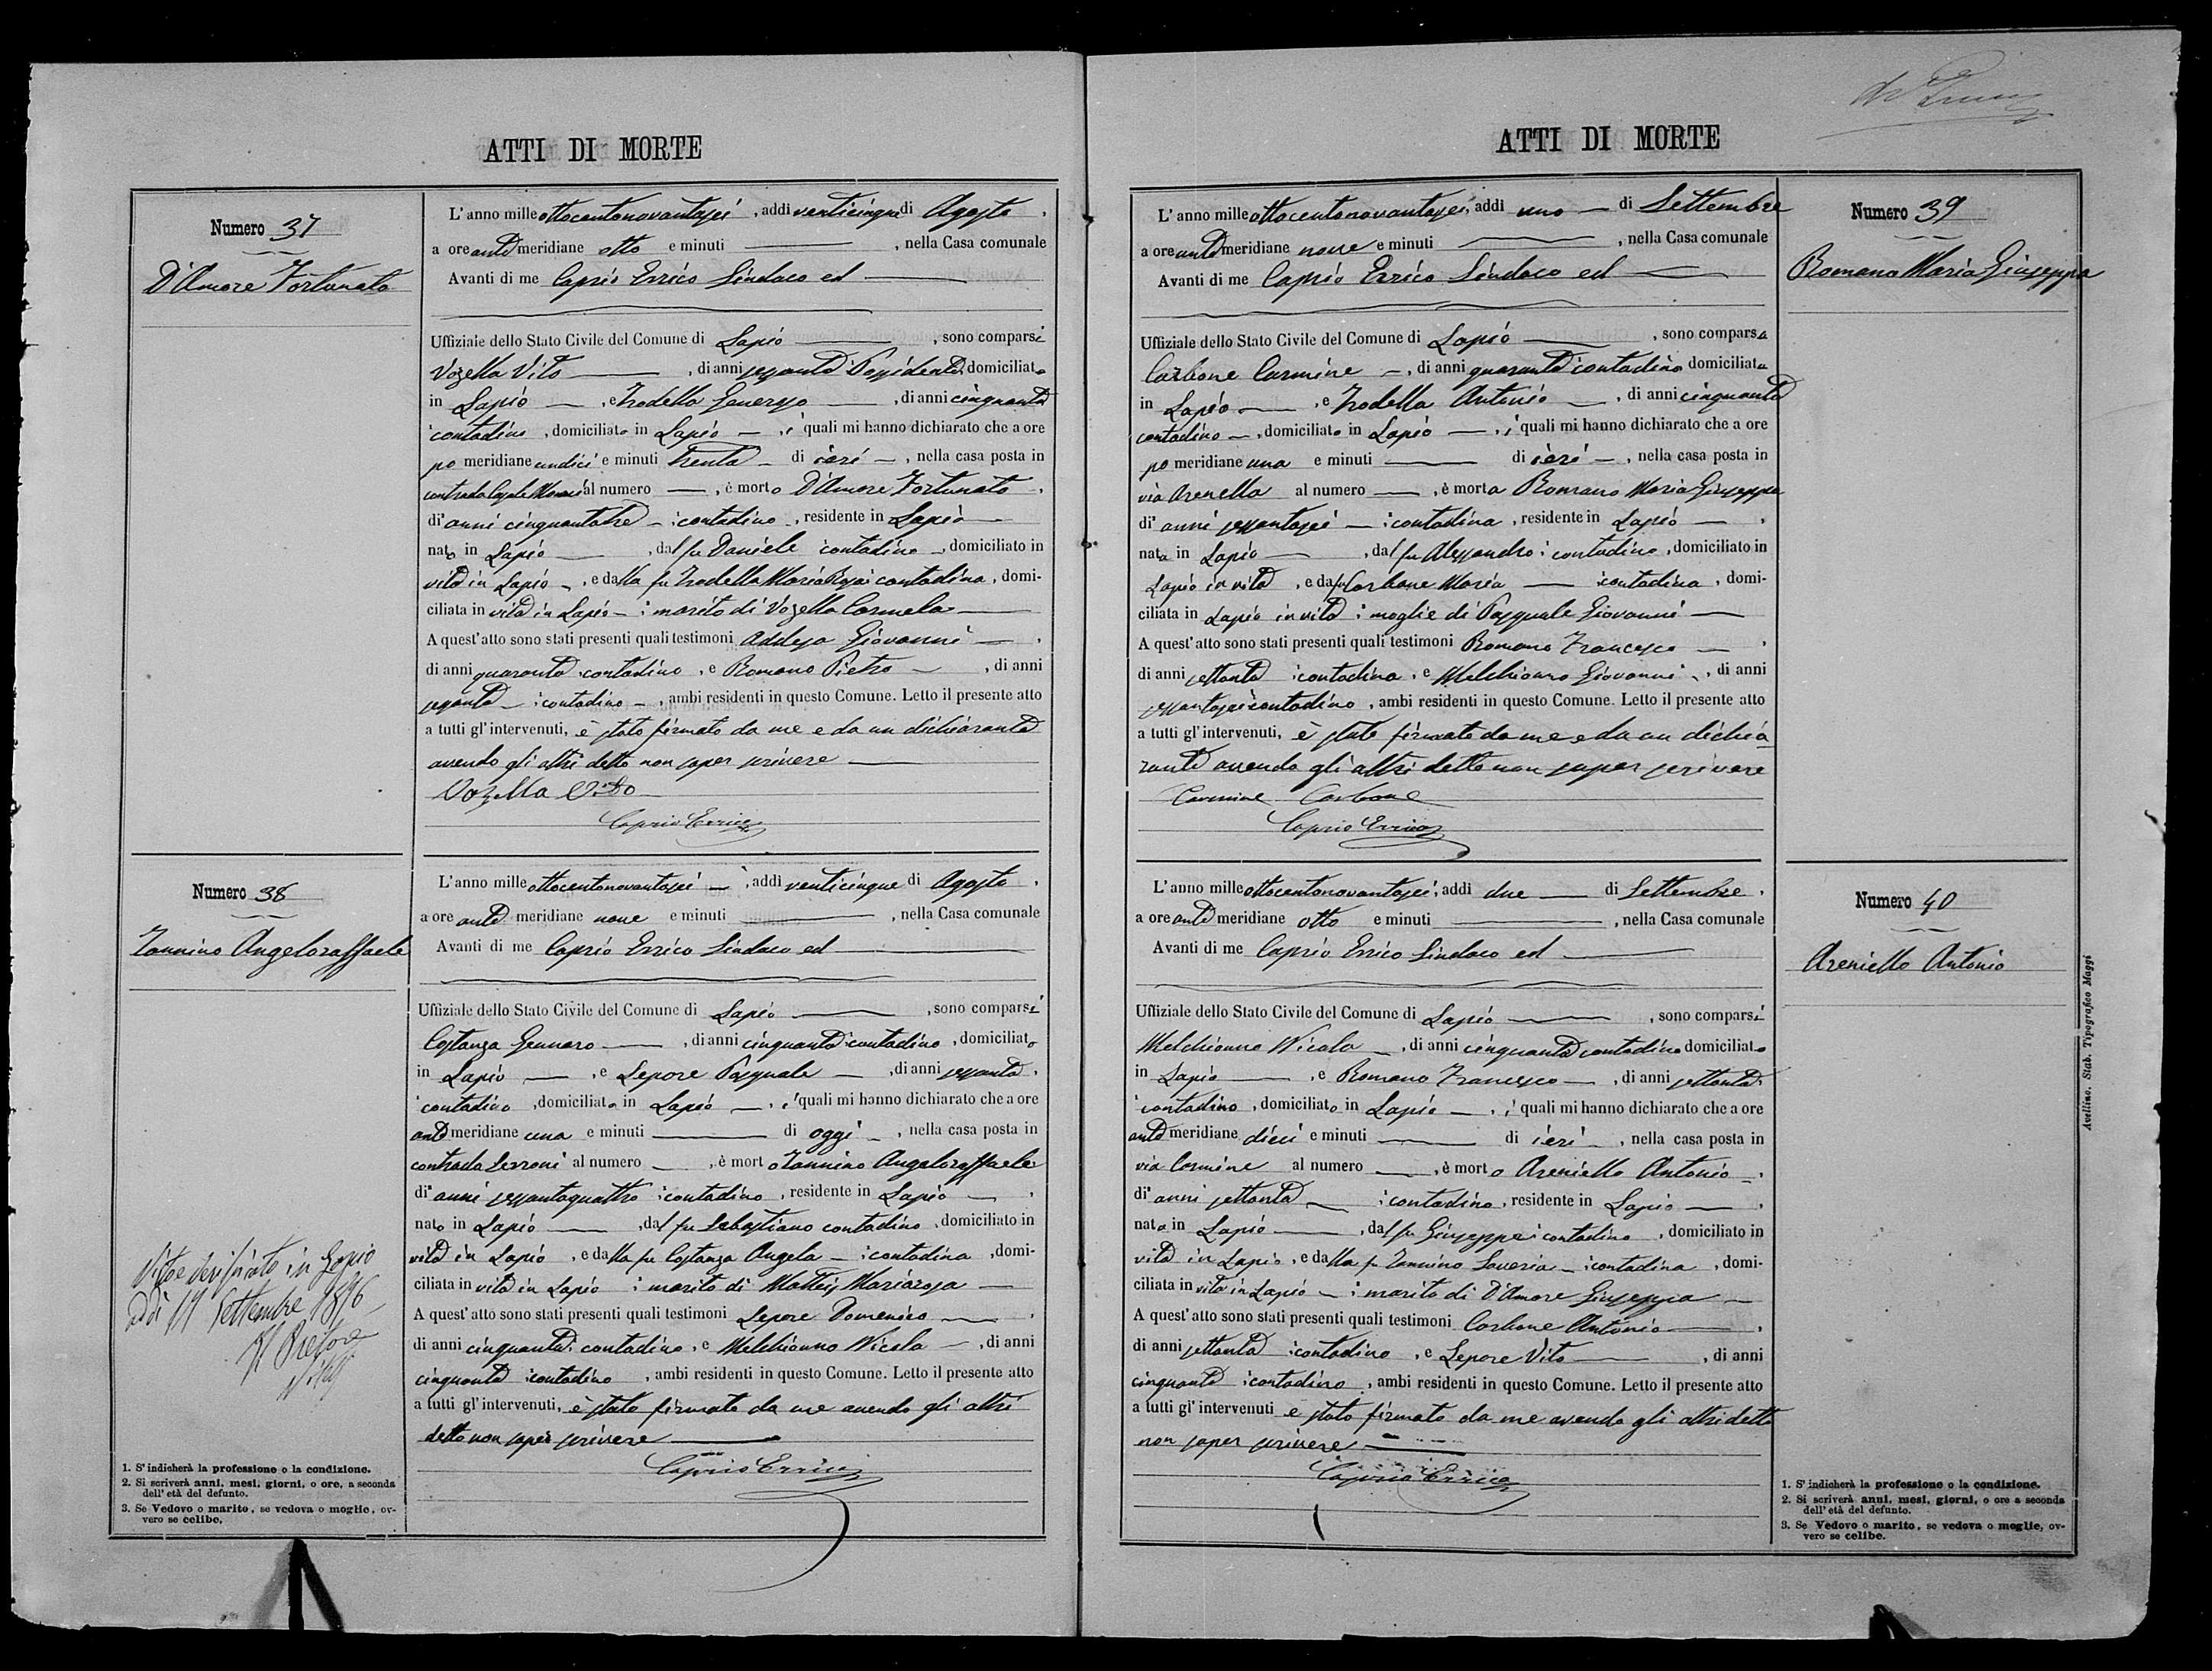 ATTI DI MORTE
Numero 37
D'Amore Fortunato
L'anno mille ottocentonovantasei, addi venticinque di Agosto,
a ore ante meridiane otto e minuti, nella Casa comunale
Avanti di me Caprio Errico Sindaco ed
Uffiziale dello Stato Civile del Comune di Lapio, sono comparsi
Vozella Vito, di anni sessanta Possidente domiciliato
in Lapio, e Trodella Generoso, di anni cinquanta
contadino, domiciliato in Lapio, i quali mi hanno dichiarato che a ore
po meridiane undici e minuti trenta di ieri, nella casa posta in
contrada al numero, è morto D'Amore Fortunato,
di anni cinquantatre contadino, residente in Lapio
nato in Lapio, dal fu Daniele contadino, domiciliato in
vita in Lapio, e dalla fu Trodella Maria Rosa contadina, domi-
ciliata in vita in Lapio marito di Vozella Carmela
A quest'atto sono stati presenti quali testimoni Addesa Giovanni,
di anni quaranta contadino, e Romano Pietro, di anni
sessanta contadino, ambi residenti in questo Comune. Letto il presente atto
a tutti gl'intervenuti, è stato firmato da me e da un dichiarante
avendo gli altri detto non saper scrivere
Vozella Vito
Caprio Errico
Numero 38
Iannino Angeloraffaele
L'anno mille ottocentonovantasei, addi venticinque di Agosto,
a ore ante meridiane nove e minuti, nella Casa comunale
Avanti di me Caprio Errico Sindaco ed
Uffiziale dello Stato Civile del Comune di Lapio, sono comparsi
Costanza Gennaro, di anni cinquanta contadino, domiciliato
in Lapio, e Lepore Pasquale, di anni sessanta,
contadino, domiciliato in Lapio, i quali mi hanno dichiarato che a ore
ante meridiane una e minuti di oggi, nella casa posta in
contrada Serroni al numero, è morto Iannino Angeloraffaele
di anni sessantaquattro contadino, residente in Lapio,
nato in Lapio, dal fu Sebastiano contadino, domiciliato in
vita in Lapio, e dalla fu Costanza Angela contadina, domi-
ciliata in vita in Lapio marito di Matteis Mariarosa
A quest'atto sono stati presenti quali testimoni Lepore Domenico,
di anni cinquanta contadino, e Melchionno Nicola, di anni
cinquanta contadino, ambi residenti in questo Comune. Letto il presente atto
a tutti gl'intervenuti, è stato firmato da me avendo gli altri
detto non saper scrivere
Caprio Errico
Visto e verificato in Lapio
addì 17 Settembre 1896
Il Pretore
1. S'indicherà la professione o la condizione.
2. Si scriverà anni, mesi, giorni, o ore, a seconda
dell'età del defunto.
3. Se Vedovo o marito, se vedova o moglie, ov-
vero se celibe.
ATTI DI MORTE
Numero 39
Romano Maria Giuseppa
L'anno mille ottocentonovantasei, addi uno di Settembre
a ore ante meridiane nove e minuti, nella Casa comunale
Avanti di me Caprio Errico Sindaco ed
Uffiziale dello Stato Civile del Comune di Lapio, sono comparsi
Carbone Carmine, di anni quaranta contadino domiciliato
in Lapio, e Trodella Antonio, di anni cinquanta
contadino, domiciliato in Lapio, i quali mi hanno dichiarato che a ore
po meridiane una e minuti di ieri, nella casa posta in
via Arenella al numero, è morta Romano Maria Giuseppa
di anni sessantasei contadina, residente in Lapio,
nata in Lapio, dal fu Alessandro contadino, domiciliato in
Lapio in vita, e da fu Carbone Maria contadina, domi-
ciliata in Lapio in vita moglie di Pasquale Giovanni
A quest'atto sono stati presenti quali testimoni Romano Francesco,
di anni settanta contadino, e Melchionno Giovanni, di anni
sessantasei contadino, ambi residenti in questo Comune. Letto il presente atto
a tutti gl'intervenuti, è stato firmato da me e da un dichia
rante avendo gli altri detto non saper scrivere
Carmine Carbone
Caprio Errico
Numero 40
Areniello Antonio
L'anno mille ottocentonovantasei, addi due di Settembre,
a ore ante meridiane otto e minuti, nella Casa comunale
Avanti di me Caprio Errico Sindaco ed
Uffiziale dello Stato Civile del Comune di Lapio, sono comparsi
Melchionno Nicola, di anni cinquanta contadino domiciliato
in Lapio, e Romano Francesco, di anni settanta
contadino, domiciliato in Lapio, i quali mi hanno dichiarato che a ore
ante meridiane dieci e minuti di ieri, nella casa posta in
via Carmine al numero, è morto Areniello Antonio,
di anni settanta contadino, residente in Lapio,
nato in Lapio, dal fu Giuseppe contadino, domiciliato in
vita in Lapio, e dalla fu Iannino Saveria contadina, domi-
ciliata in vita in Lapio marito di D'Amore Giuseppa
A quest'atto sono stati presenti quali testimoni Carbone Antonio,
di anni settanta contadino, e Lepore Vito, di anni
cinquanta contadino, ambi residenti in questo Comune. Letto il presente atto
a tutti gl'intervenuti è stato firmato da me avendo gli altri detto
non saper scrivere
Caprio Errico
1. S'indicherà la professione o la condizione.
2. Si scriverà anni, mesi, giorni, o ore a seconda
dell'età del defunto.
3. Se Vedovo o marito, se vedova o moglie, ov-
vero se celibe.
Avellino. Stab. Tipografico Maggi